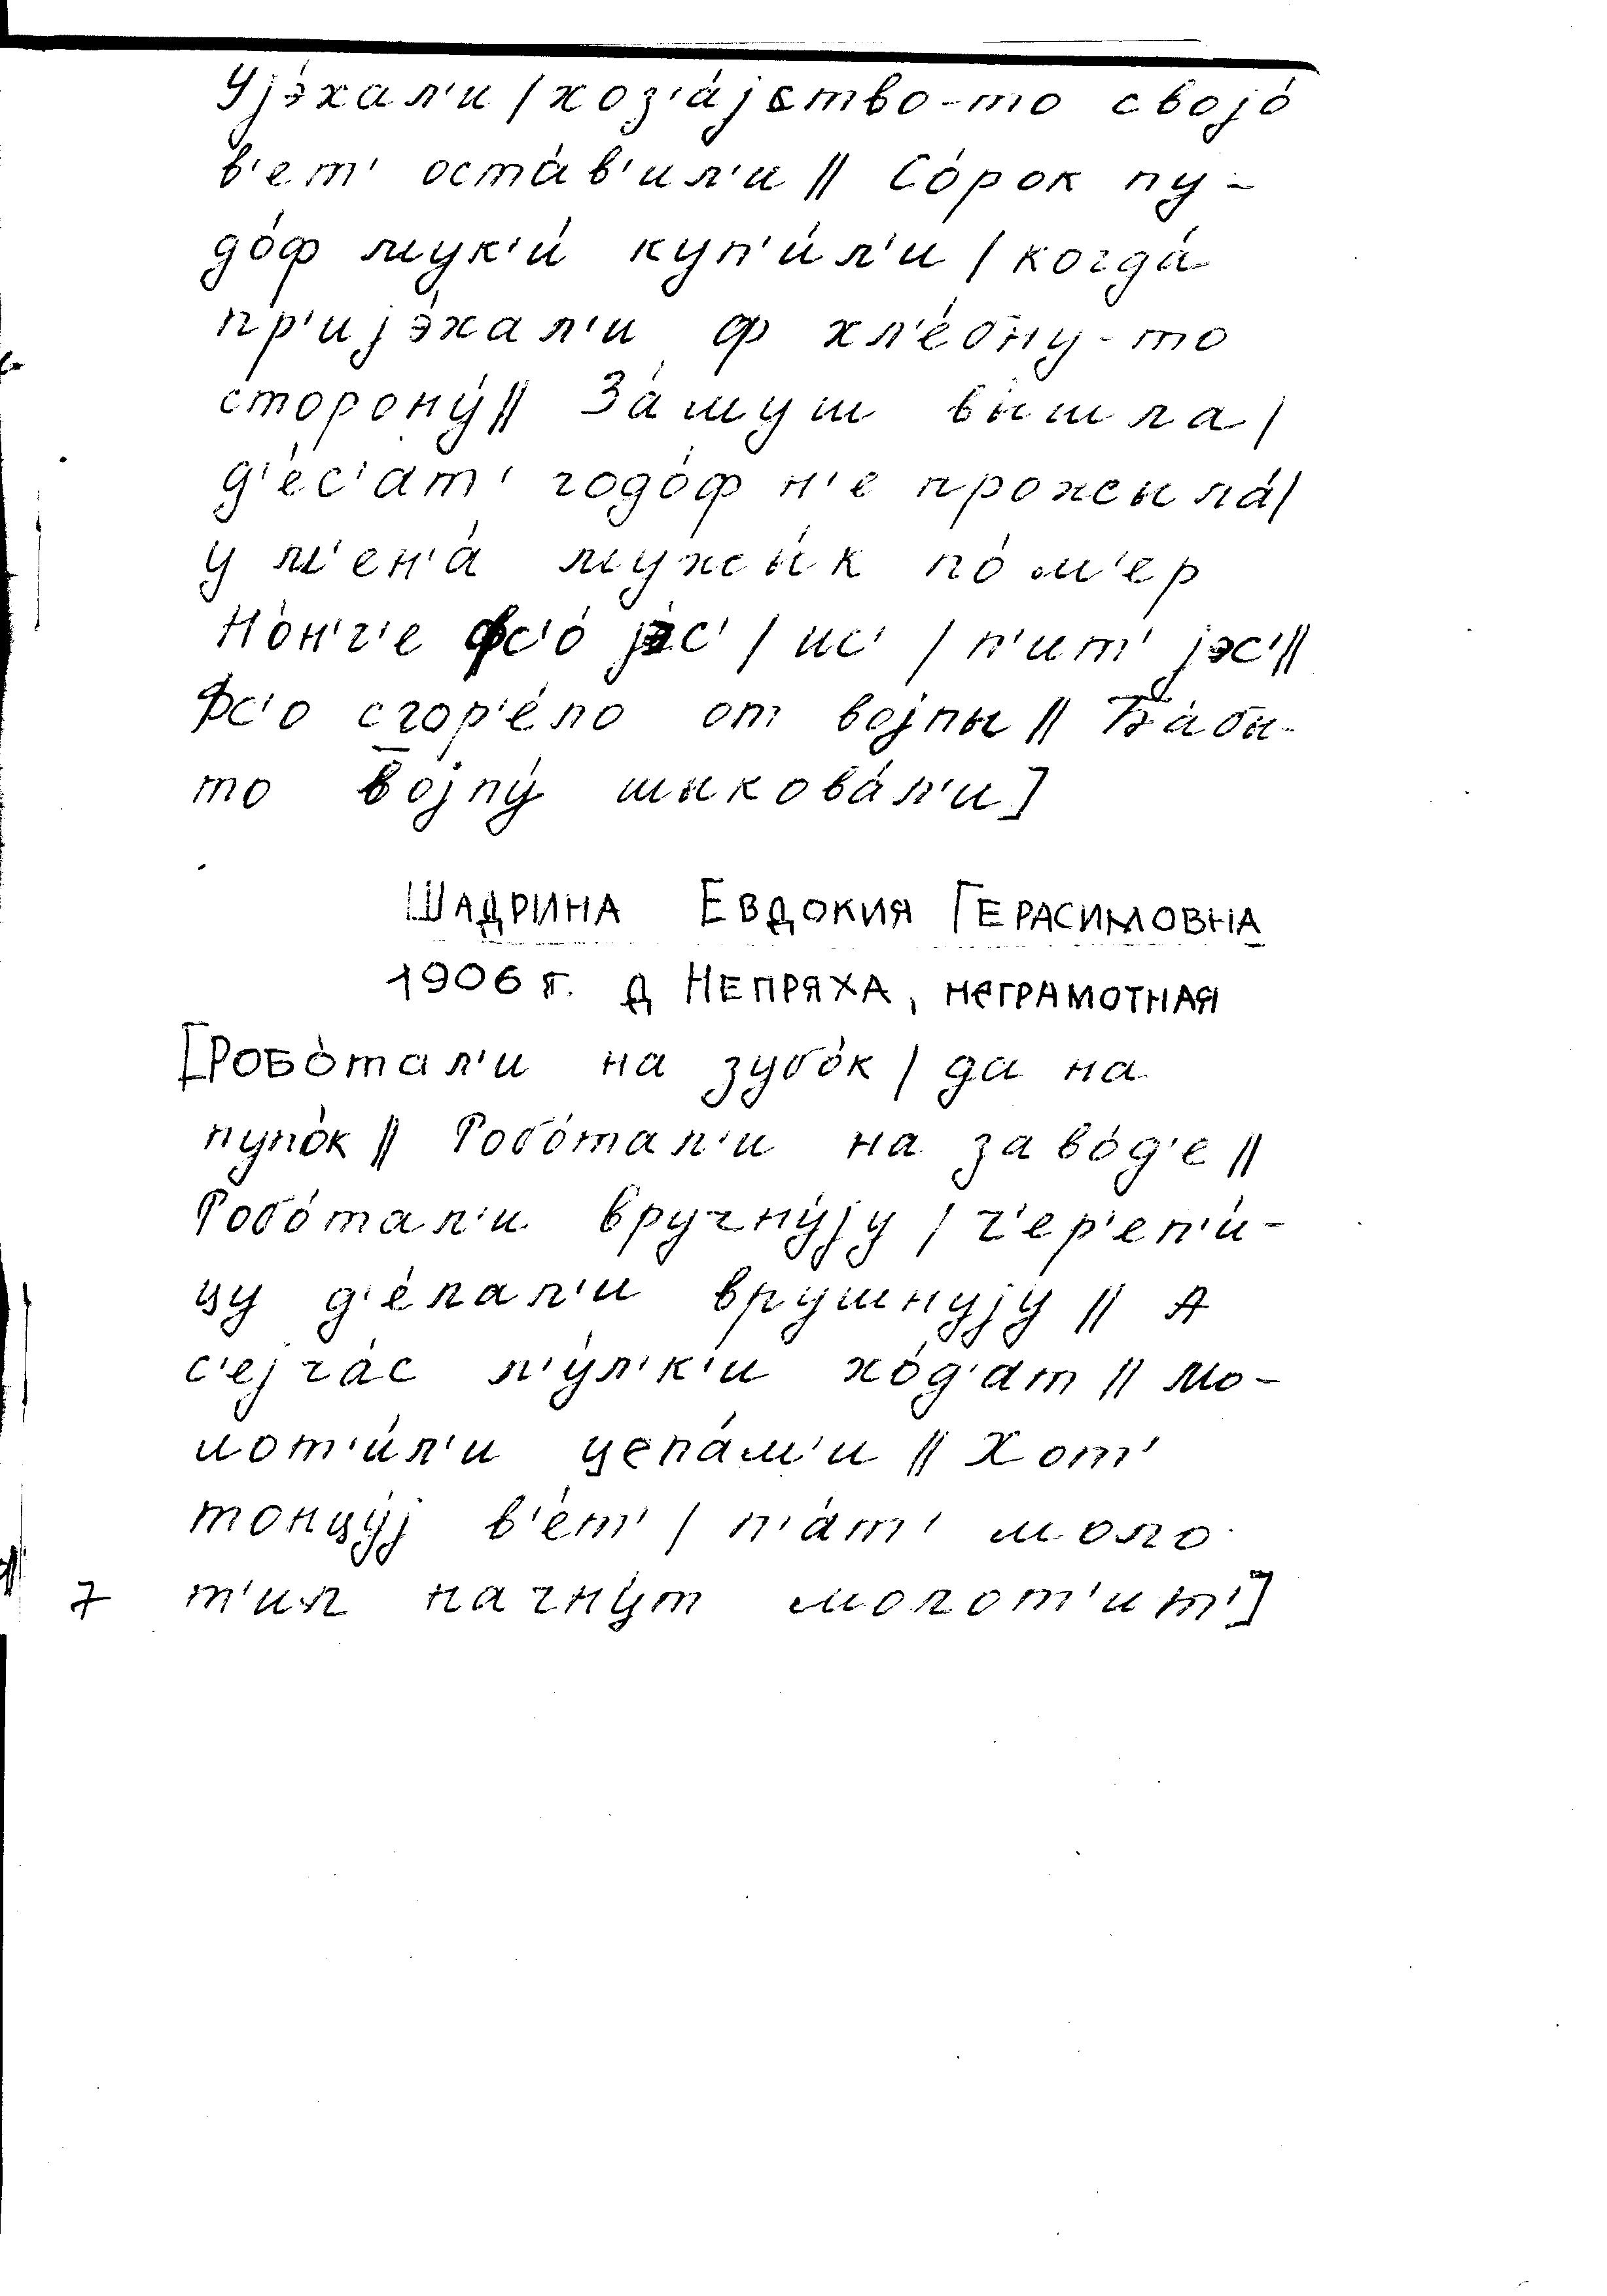 Уjэ́хал'и / хоз'а́jство-то своjо́
в'ет' оста́в'ил'и // Со́рок пу-
до́ф мук'и́ куп'и́л'и / когда́
пр'иjэ́хал'и ф хл'е́бну-то
сторону́ // За́муш вы́шла /
д'е́с'ат' годо́ф н'е прожыла́ /
у м'ен'а́ мужы́к по́м'ер
Но́н'г'е фс'о́ jэс' / ис' / п'ит' jэс' //
Фс'о сгор'е́ло от воjны // Ба́бы-
то воjну́ шыкова́л'и]
Шадрина Евдокия Герасимовна
1906 г. д Непряха, неграмотная
[Робо́тал'и на зубо́к / да на
пупо́к // Робо́тал'и на заво́д'е //
Робо́тал'и вручну́jу / ч'ер'еп'и́-
цу д'е́лал'и врушнуjу // А
с'еjча́с л'у́л'к'и хо́д'ат // Мо-
лот'и́л'и цепа́м'и // Хот'
тонцу́j в'е́т' / п'а́т' моло
7 т'ил начну́т молот'ит']